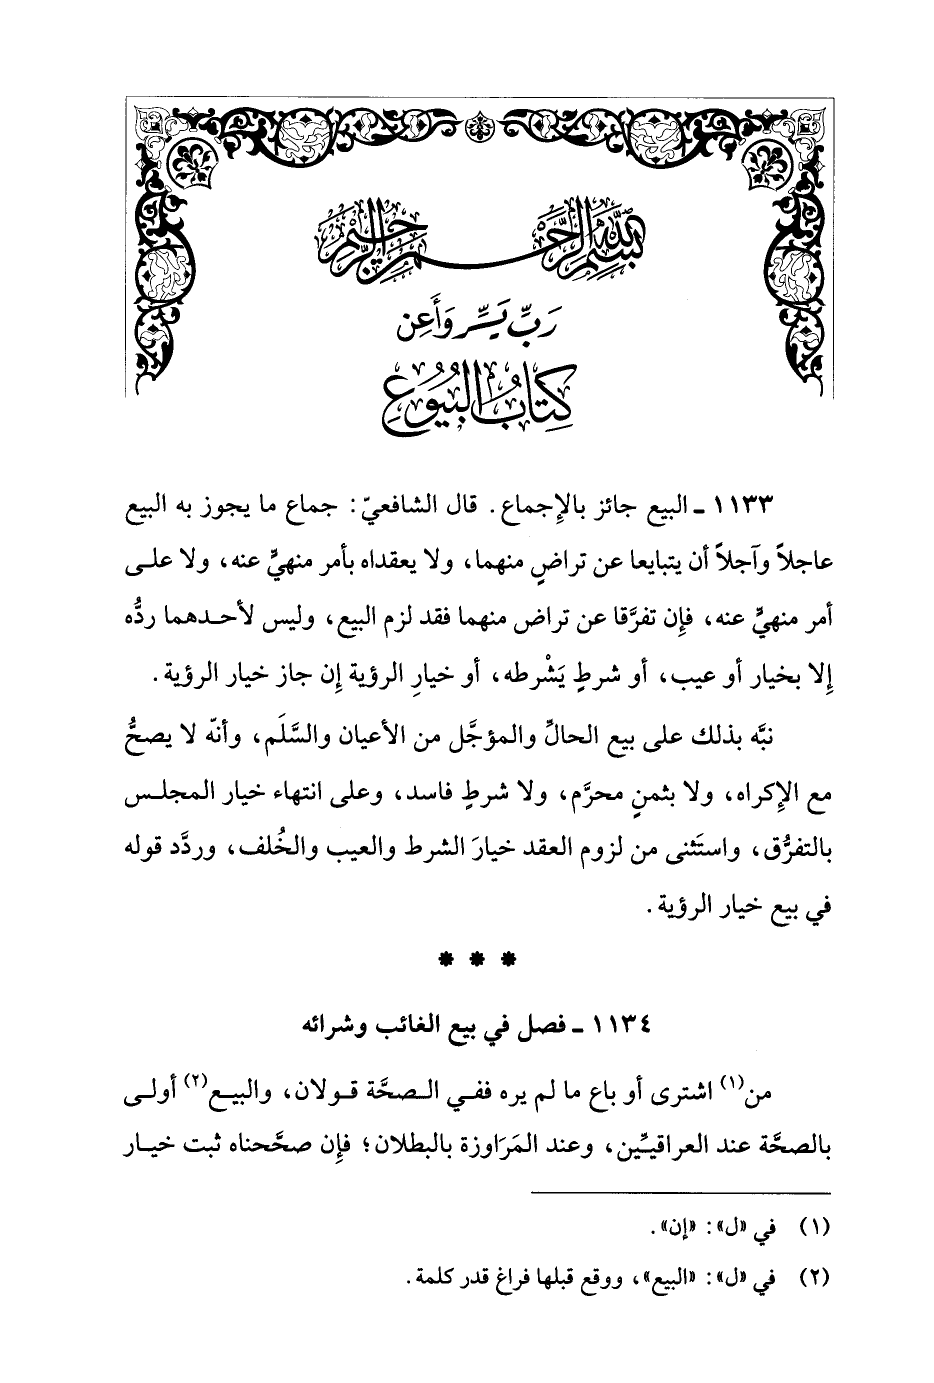 بسم الله الرحمن الرحيم
رَبِّ يَسِّر وَأَعِن
كِتَابُ البُيُوعِ
١١٣٣ ـ البيع جائز بالإجماع. قال الشافعيّ: جماع ما يجوز به البيع
عاجلاً وآجلاً أن يتبايعا عن تراضٍ منهما، ولا يعقداه بأمر منهيٍّ عنه، ولا على
أمر منهيٍّ عنه، فإن تفرَّقا عن تراض منهما فقد لزم البيع، وليس لأحدهما ردُّه
إلا بخيار أو عيب، أو شرطٍ يَشْرطه، أو خيارِ الرؤية إن جاز خيار الرؤية.
نبَّه بذلك على بيع الحالِّ والمؤجَّل من الأعيان والسَّلَم، وأنّه لا يصحُّ
مع الإكراه، ولا بثمنٍ محرَّم، ولا شرطٍ فاسد، وعلى انتهاء خيار المجلس
بالتفرُّق، واستَثنى من لزوم العقد خيارَ الشرط والعيب والخُلف، وردَّد قوله
في بيع خيار الرؤية.
* * *
١١٣٤ ـ فصل في بيع الغائب وشرائه
من(١) اشترى أو باع ما لم يره ففي الصحَّة قولان، والبيع(٢) أولى
بالصحَّة عند العراقيِّين، وعند المَرَاوزة بالبطلان؛ فإن صحَّحناه ثبت خيار
(١) في «ل»: «إن».
(٢) في «ل»: «البيع»، ووقع قبلها فراغ قدر كلمة.